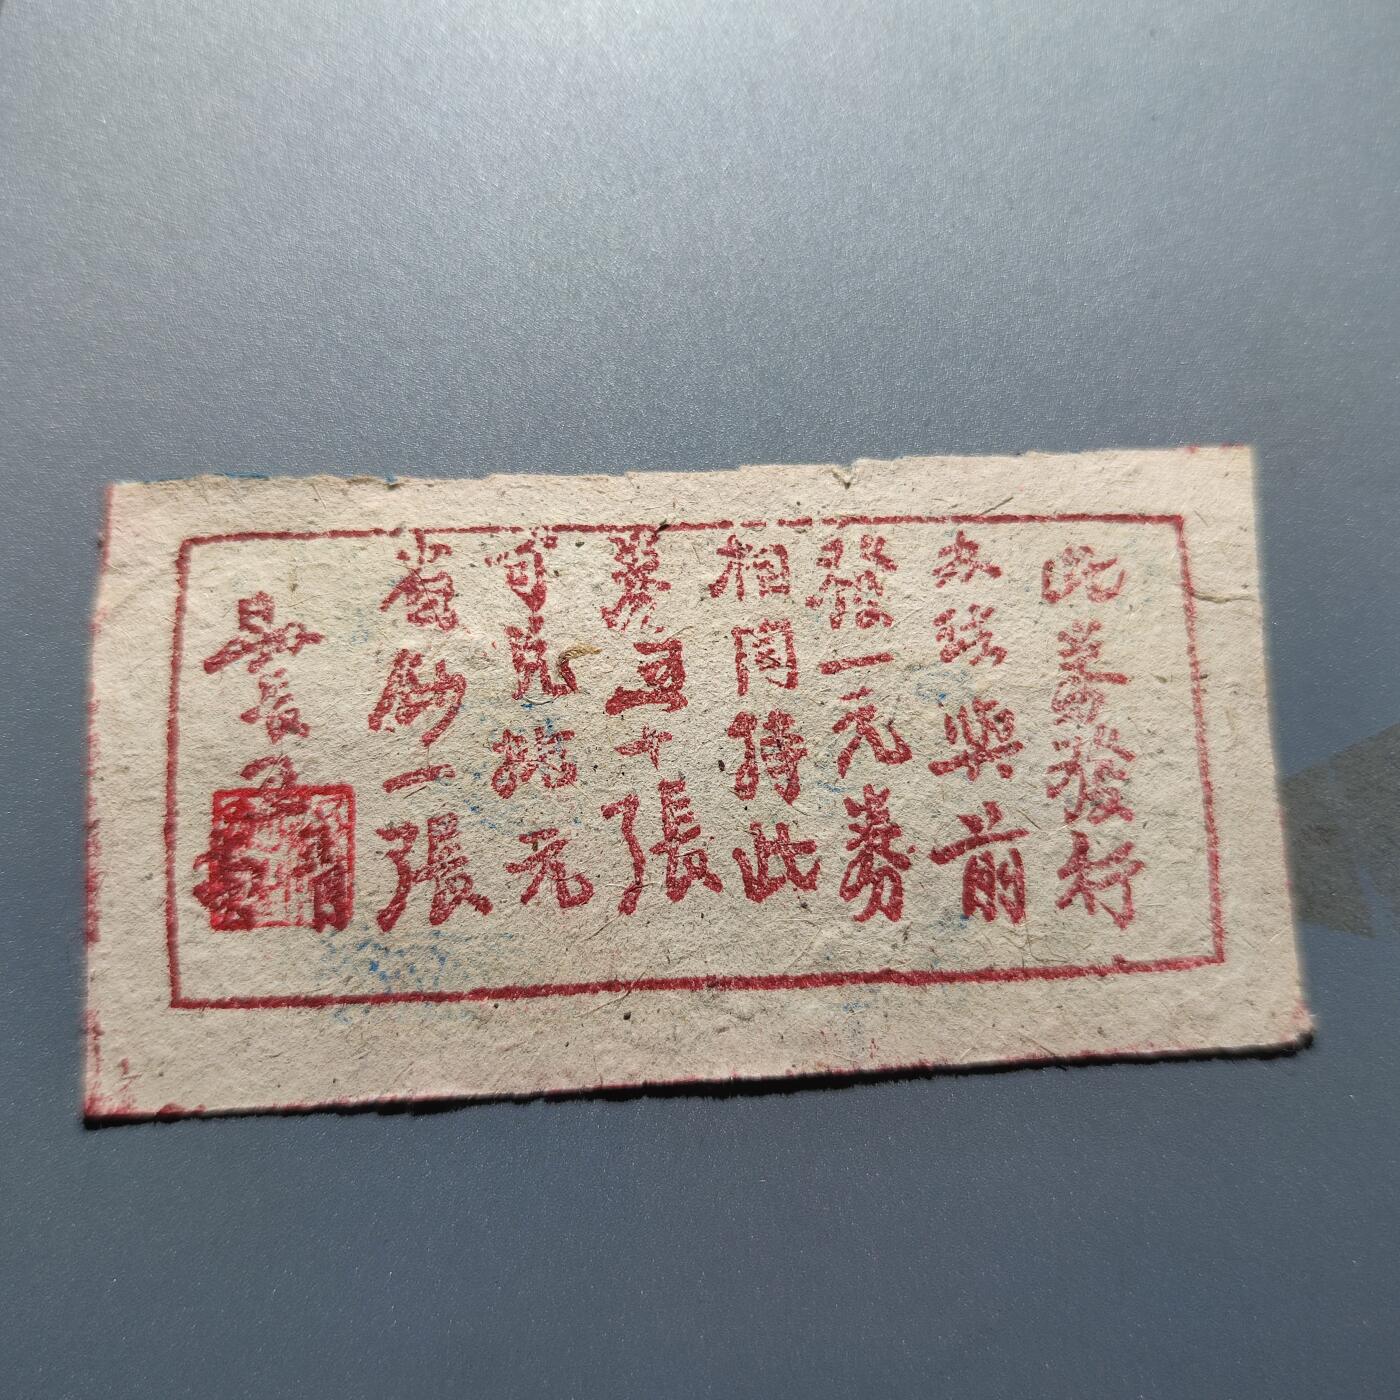 此券發行
办法與前
發一元券
相同持此
券五十張
可兌拾元
省鈔一張
县長